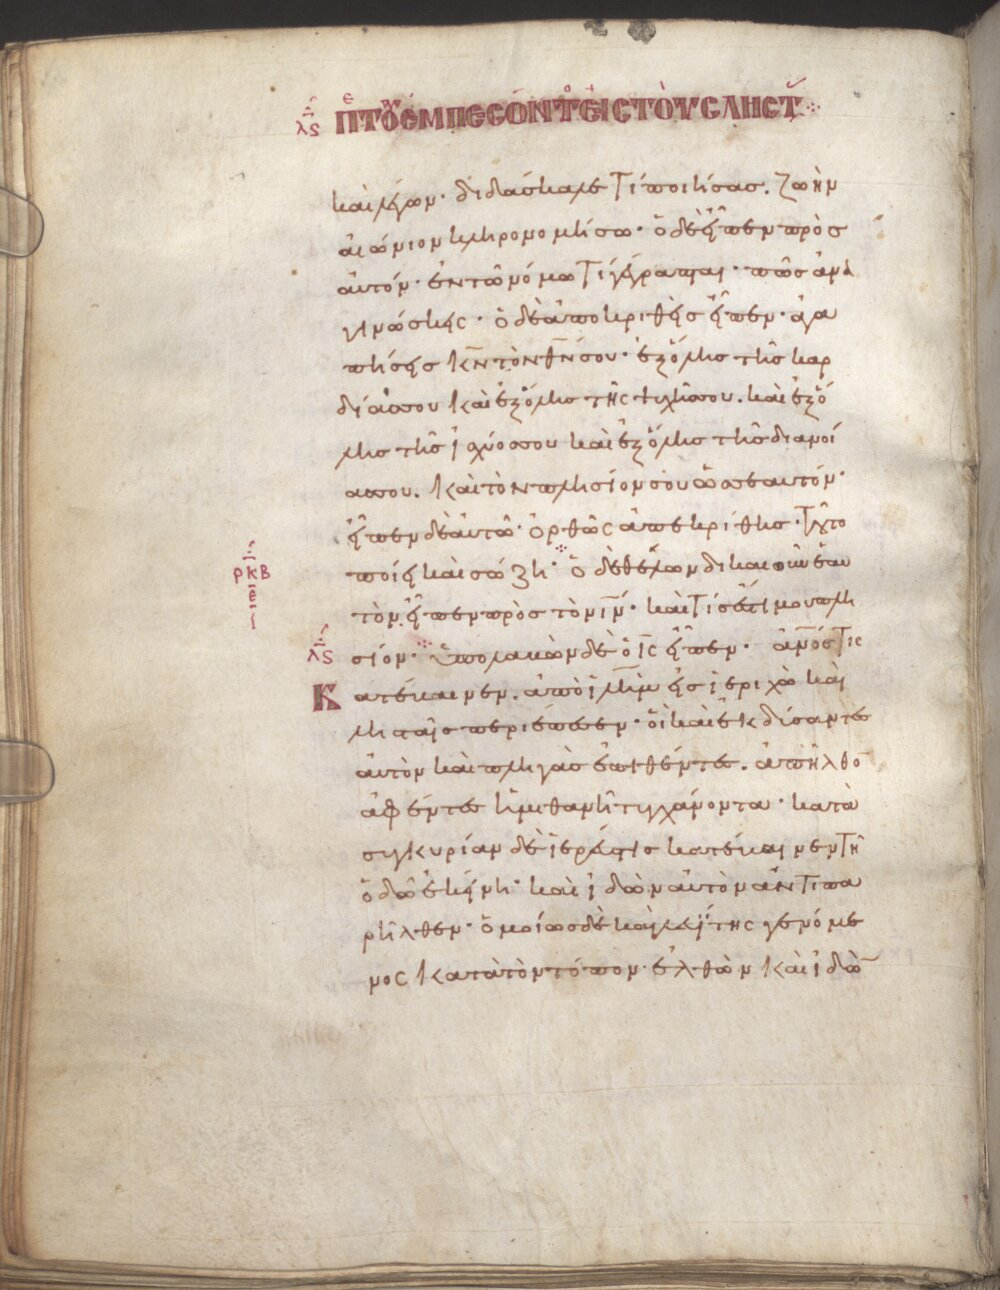 λϛ Πε τοῦ ἐμπεσόντος εἰς τοὺς ληστ
καὶ λέγων· διδάσκαλε τί ποιήσας. ζωὴν
αἰώνιον κληρονομήσω· ὁ δὲ εἶπεν πρὸσ
αὐτόν· ἐν τῶ νόμω τί γέγραπται· πῶσ ἀνα
γινώσκεις· ὁ δὲ ἀποκριθεὶς εἶπεν· ἀγα
πήσεισ κ̅ν̅ τὸν θ̅ν̅ σου· ἐξ ὅλησ τῆσ καρ
δίασ σου καὶ ἐξ ὅλησ τῆς ψυχῆσ σου. καὶ ἐξ ὅ
λησ τῆσ ἰσχύοσ σου καὶ ἐξ ὅλησ τῆσ διανοί
ασ σου. καὶ τὸν πλησίον σου ὡσ σεαυτόν·
εἶπεν δὲ αὐτῶ· ὀρθῶς ἀπεκρίθησ· τοῦτο
ρκβ ποίει καὶ σώζη· ὁ δὲ θέλων δικαιοῦν ἑαυ
τὸν εἶπεν πρὸσ τὸν ι̅ν̅· καὶ τίσ ἐστί μου πλη
λϛ σίον· ὑπολαβὼν δὲ ὁ ι̅ς̅ εἶπεν· α̅ν̅ο̅ς̅ τις
Κατέβαινεν. ἀπὸ ι̅λ̅η̅μ̅ εἰσ ἱεριχὼ καὶ
λησταῖσ περιέπεσεν· οἳ καὶ ἐκδύσαντεσ
αὐτὸν καὶ πληγὰσ ἐπιθέντεσ. ἀπῆλθο̅
ἀφέντεσ ἡμιθανῆ τυγχάνοντα· κατὰ
συγκυρίαν δὲ ἱερεύς τισ κατέβαινεν τῆ
ὁδῶ ἐκείνη· καὶ ἰδὼν αὐτὸν ἀντιπα
ρῆλθεν· ὁμοίωσ δὲ καὶ λευίτης γενόμε
νος κατὰ τὸν τόπον· ἐλθὼν καὶ ἰδὼ̅